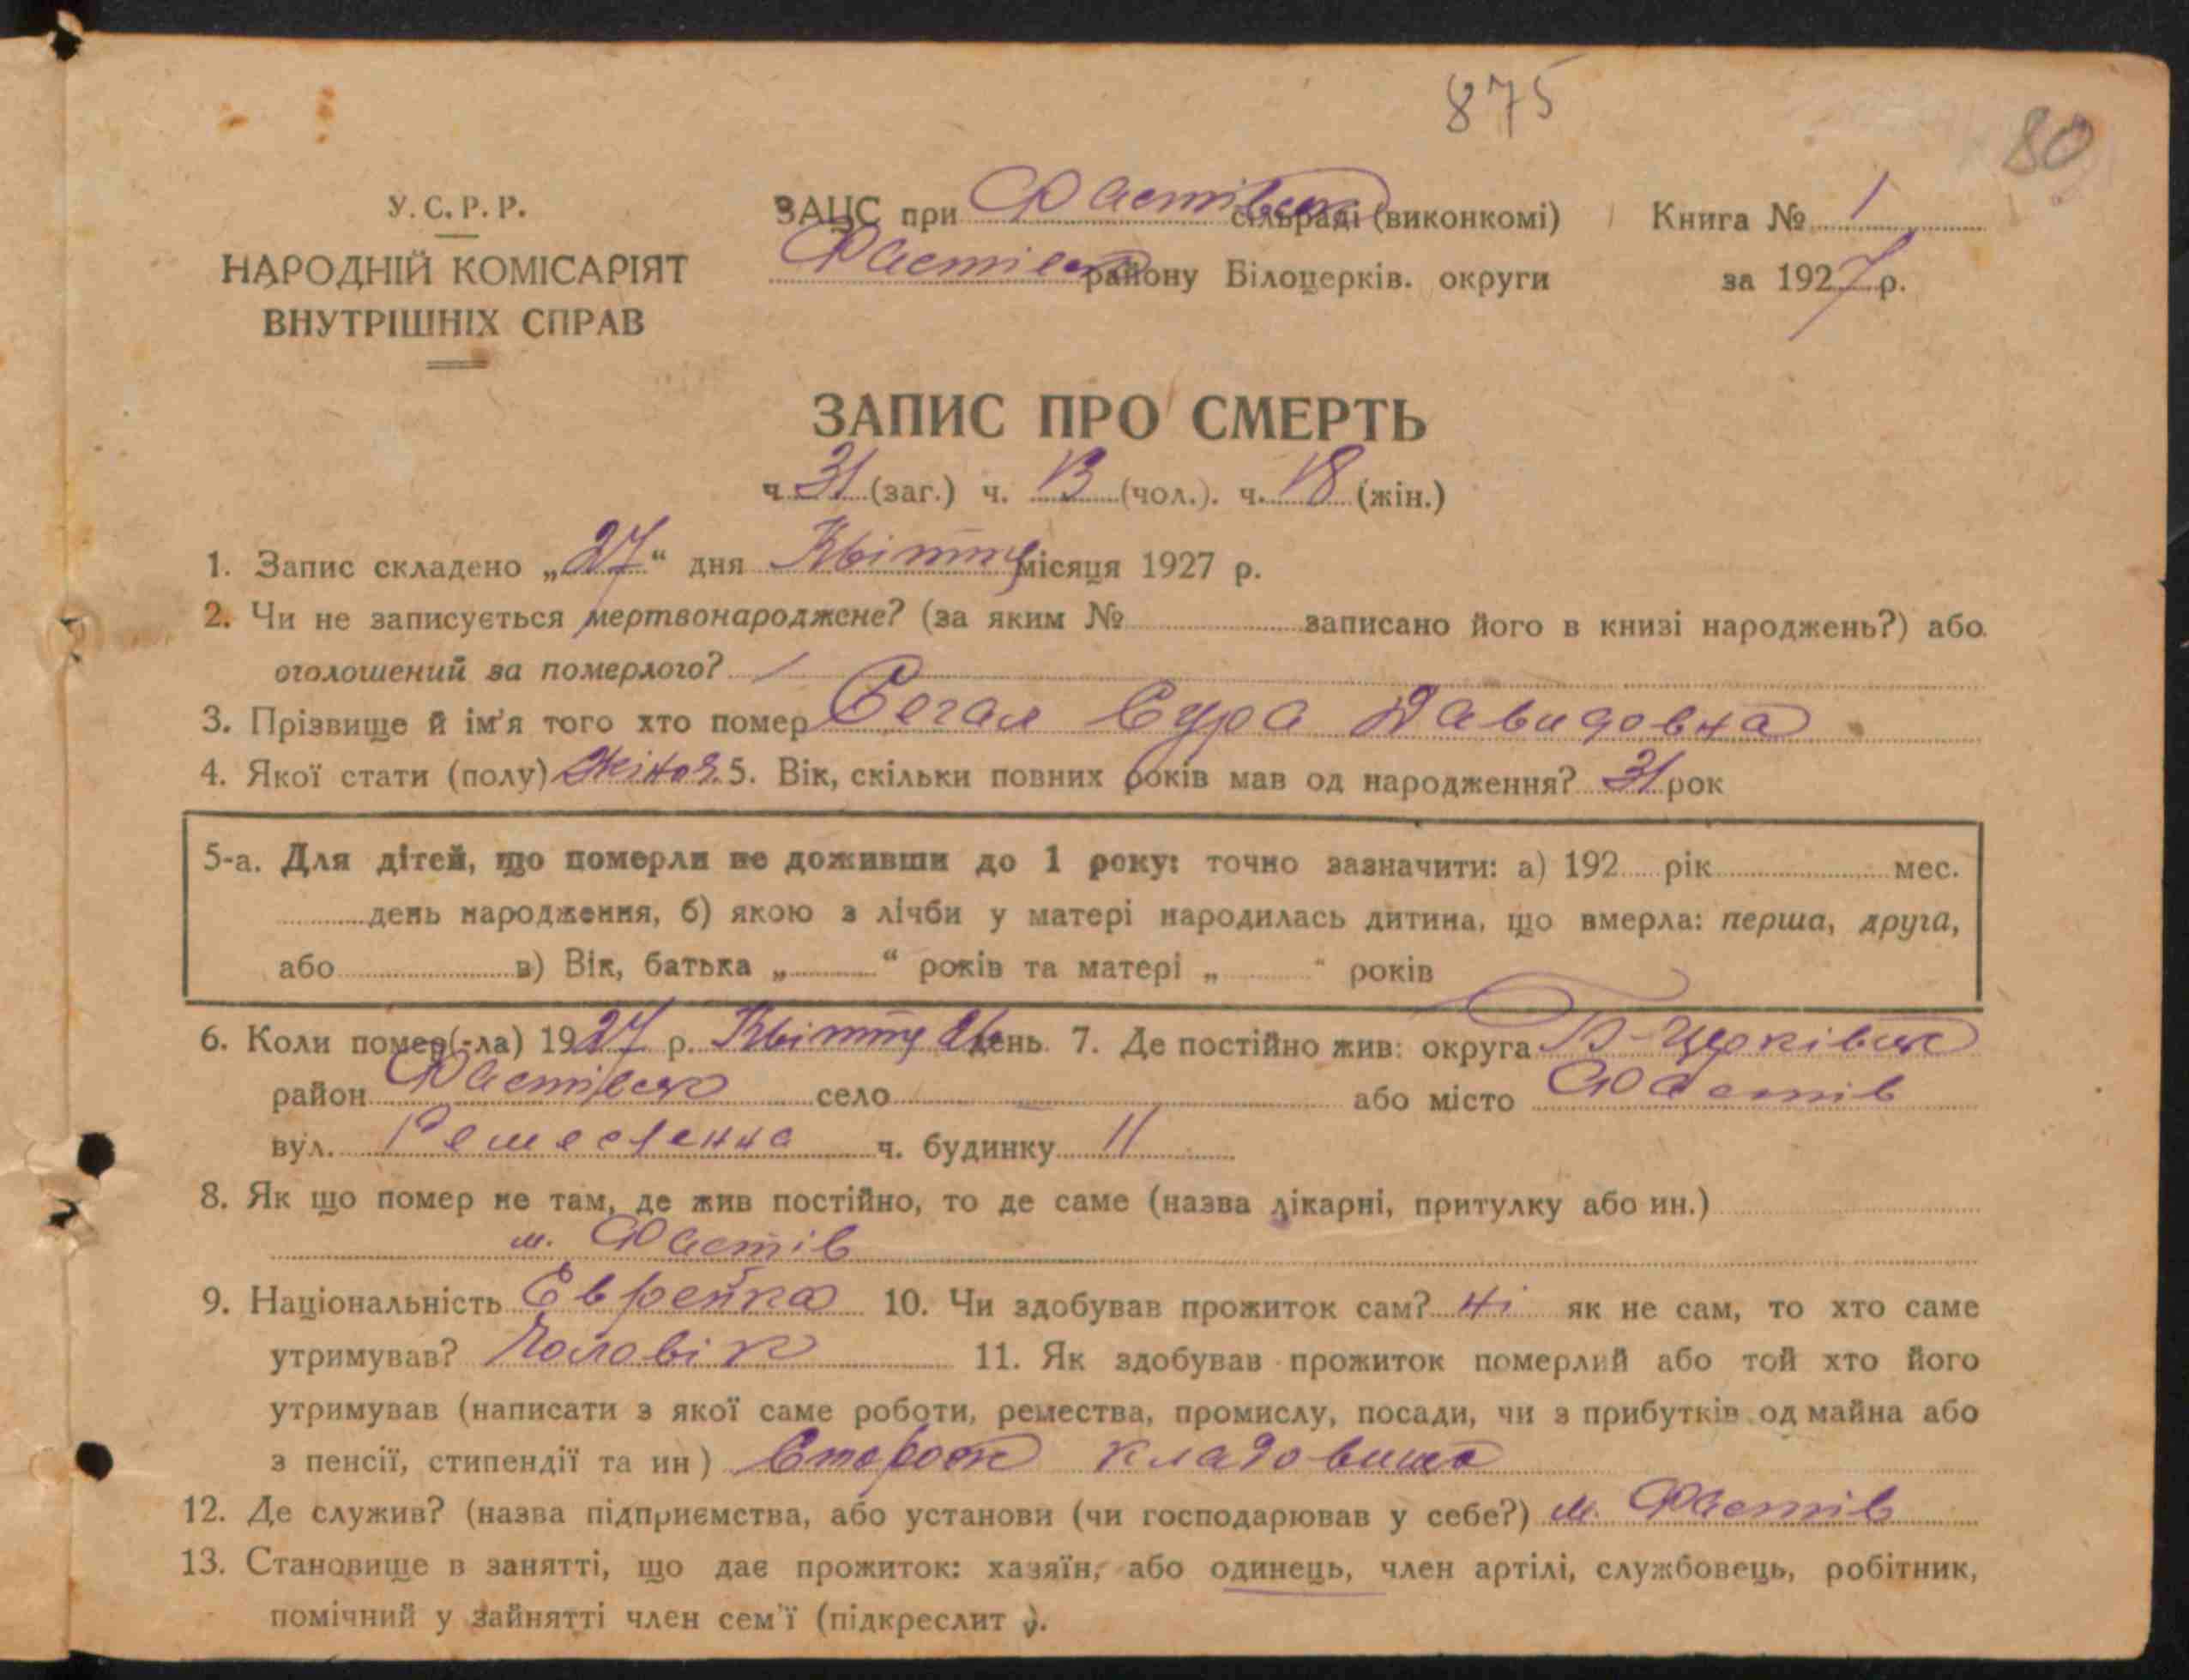 875
80
У. С. Р. Р.
НАРОДНІЙ КОМІСАРІЯТ
ВНУТРІШНІХ СПРАВ
ЗАЦС при Фастівськ сільраді (виконкомі)
Фастівськ району Білоцерків. округи
Книга № 1
за 1927 р.
ЗАПИС ПРО СМЕРТЬ
ч. 31 (заг.) ч. 13 (чол.). ч. 18 (жін.)
1. Запис складено „27“ дня Квітня місяця 1927 р.
2. Чи не записується мертвонароджене? (за яким № записано його в книзі народжень?) або
оголошений за померлого? /
3. Прізвище й ім'я того хто помер Сегал Сура Давидовна
4. Якої стати (полу) жіноч. 5. Вік, скільки повних років мав од народження? 31 рок
5-а. Для дітей, що померли не доживши до 1 року: точно зазначити: а) 192 рік мес.
день народження, б) якою з лічби у матері народилась дитина, що вмерла: перша, друга,
або в) Вік, батька „ “ років та матері „ “ років
6. Коли помер(-ла) 1927 р. Квітня 26 день. 7. Де постійно жив: округа Б-Церківськ
район Фастівськ село або місто Фастів
вул. Ремеслена ч. будинку 11
8. Як що помер не там, де жив постійно, то де саме (назва лікарні, притулку або ин.)
м. Фастів
9. Національність Еврейка 10. Чи здобував прожиток сам? ні як не сам, то хто саме
утримував? Чоловік 11. Як здобував прожиток померлий або той хто його
утримував (написати з якої саме роботи, ремества, промислу, посади, чи з прибутків од майна або
з пенсії, стипендії та ин) Сторож кладовища
12. Де служив? (назва підприємства, або установи (чи господарював у себе?) м. Фастів
13. Становище в занятті, що дає прожиток: хазяїн, або одинець, член артілі, службовець, робітник,
помічний у зайнятті член сем'ї (підкреслит ).